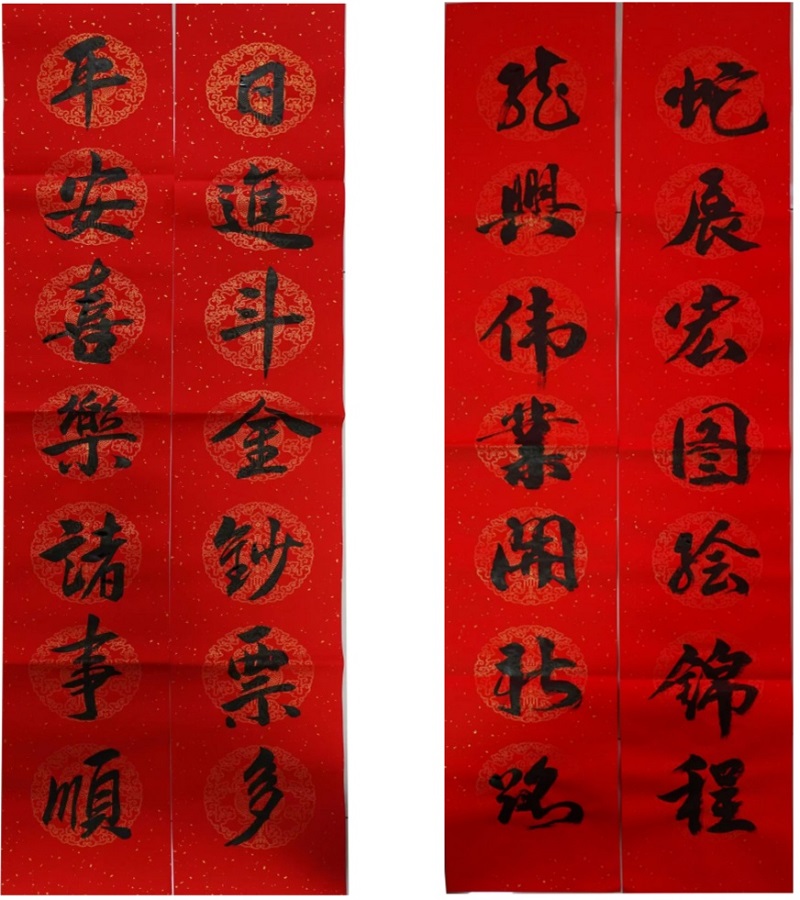 蛇展宏图绘錦程
龍興伟業開新路
日進斗金鈔票多
平安喜樂諸事順